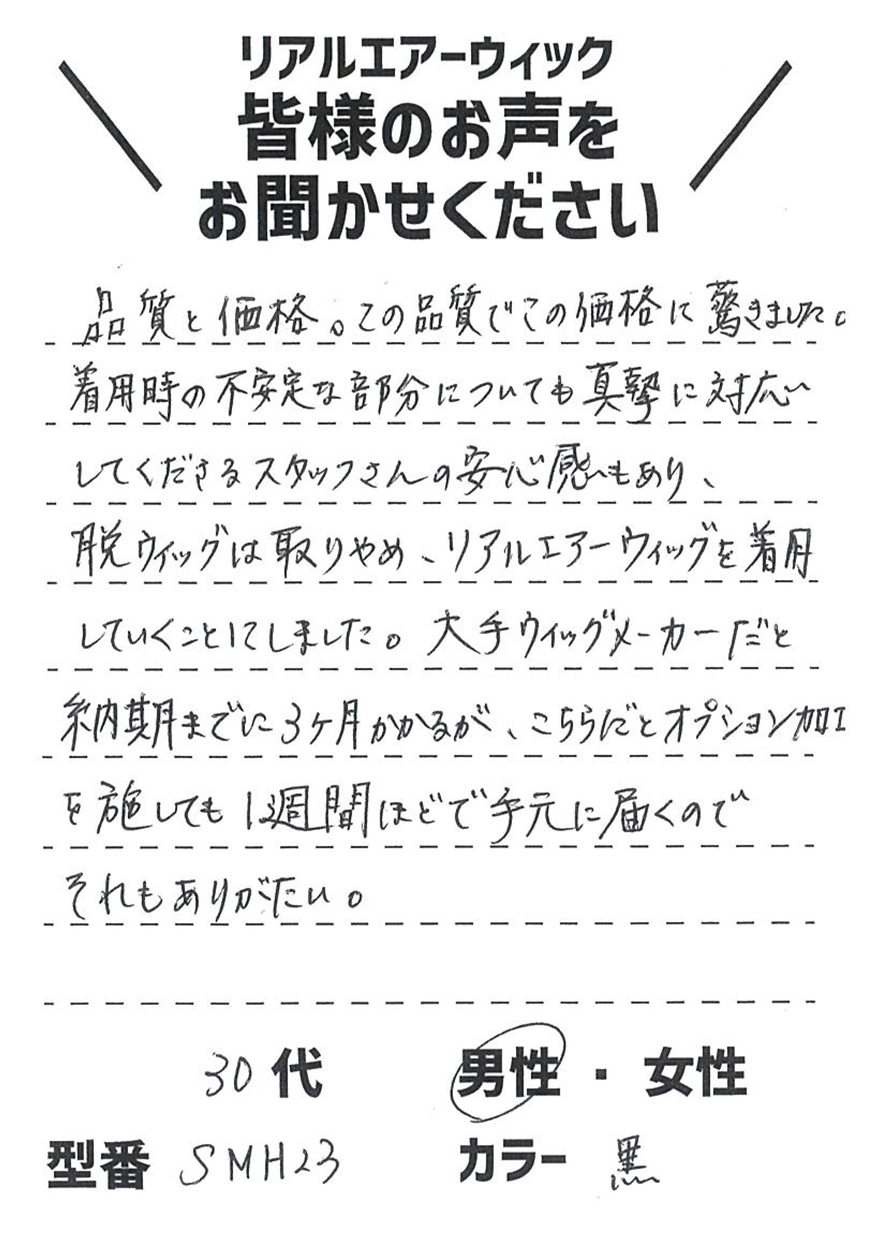 リアルエアーウィック
皆様のお声を
お聞かせください
品質と価格。この品質でこの価格に驚きました。
着用時の不安定な部分についても真摯に対応い
してくださるスタッフさんの安心感もあり、
脱ウィッグは取りやめ、リアルエアーウィッグを着用
していくことにしました。大手ウィッグメーカーだと
納期までに3ヶ月かかるが、こちらだとオプション加工
を施しても1週間ほどで手元に届くので
それもありがたい。
30代 男性・女性
型番 SMH23 カラー 黒